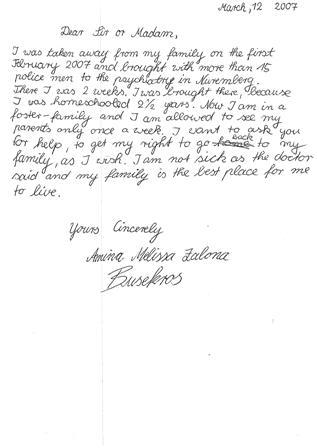 March, 12 2007
Dear Sir or Madam,
I was taken away from my family on the first
February 2007 and brought with more than 15
police men to the psychiatry in Nuremberg.
There I was 2 weeks. I was brought there, because
I was homeschooled 2½ years. Now I am in a
foster-family and I am allowed to see my
parents only once a week. I want to ask you
for help, to get my right to go back to my
family, as I wish. I am not sick as the doctor
said and my family is the best place for me
to live.
Yours Sincerely
Melissa
Busekros